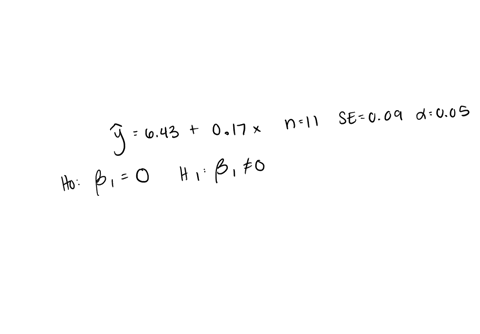 ŷ = 6.43 + 0.17x n=11 SE=0.09 α=0.05
H₀: β₁ = 0 H₁: β₁ ≠ 0